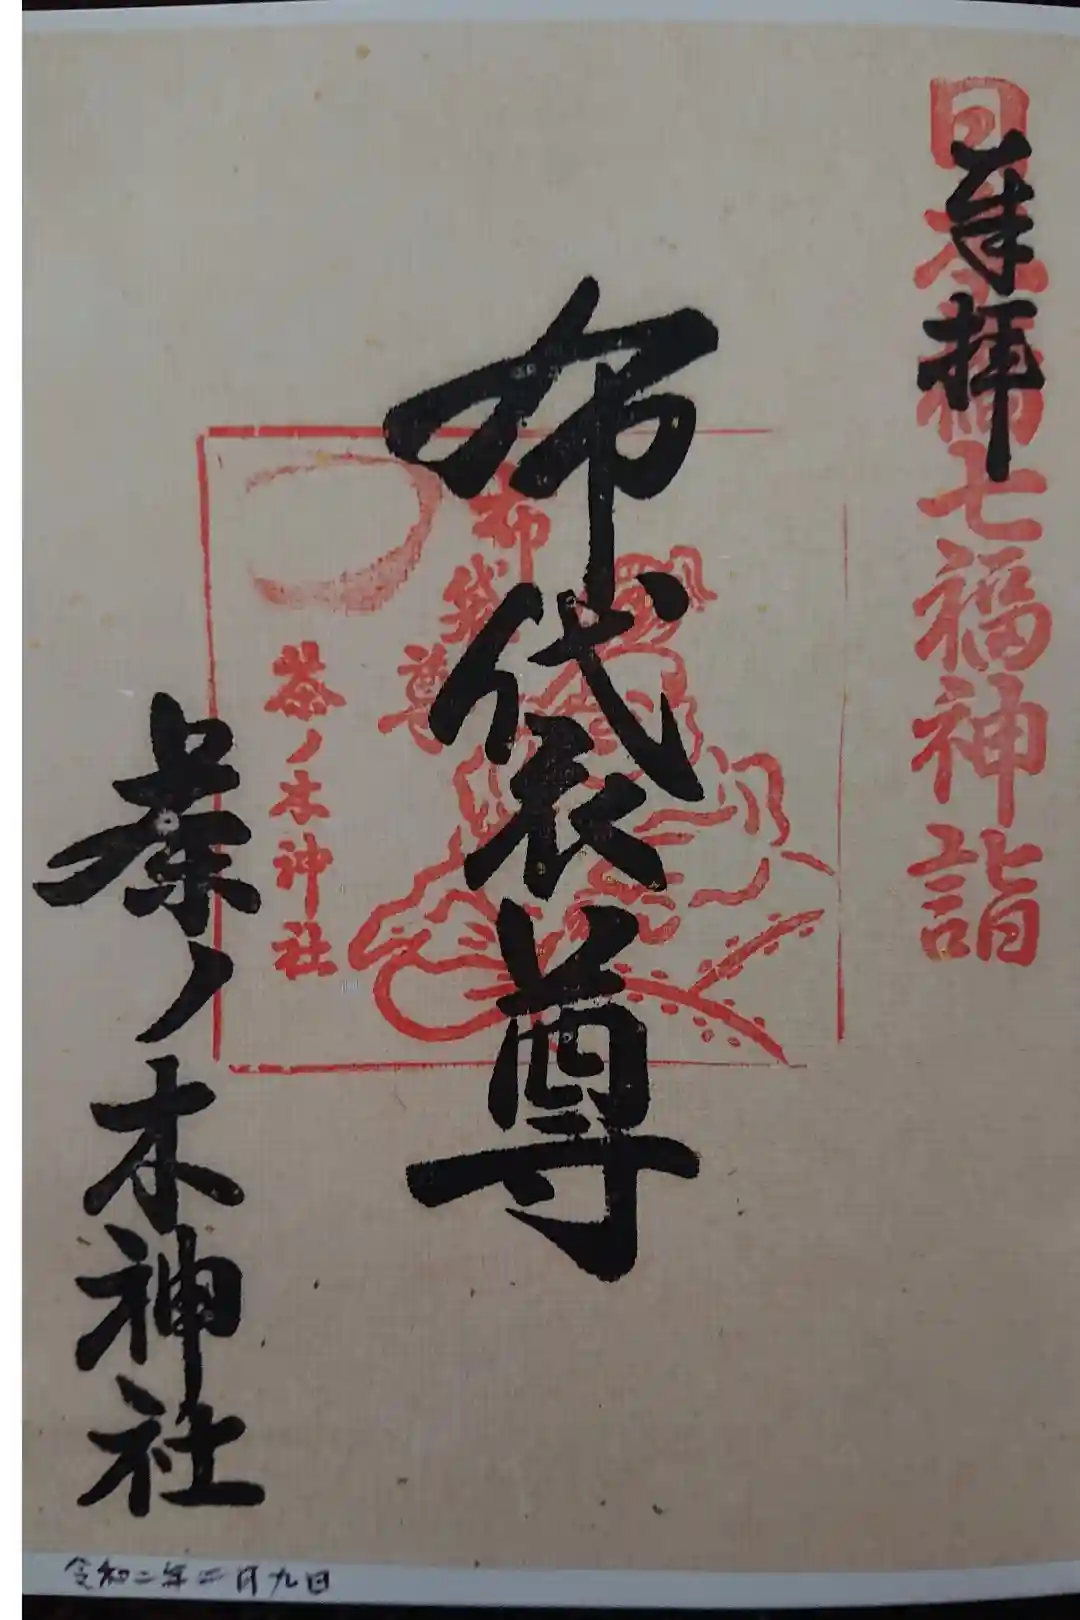 奉拝
日本橋七福神詣
布袋尊
布袋尊
茶ノ木神社
茶ノ木神社
令和二年二月九日